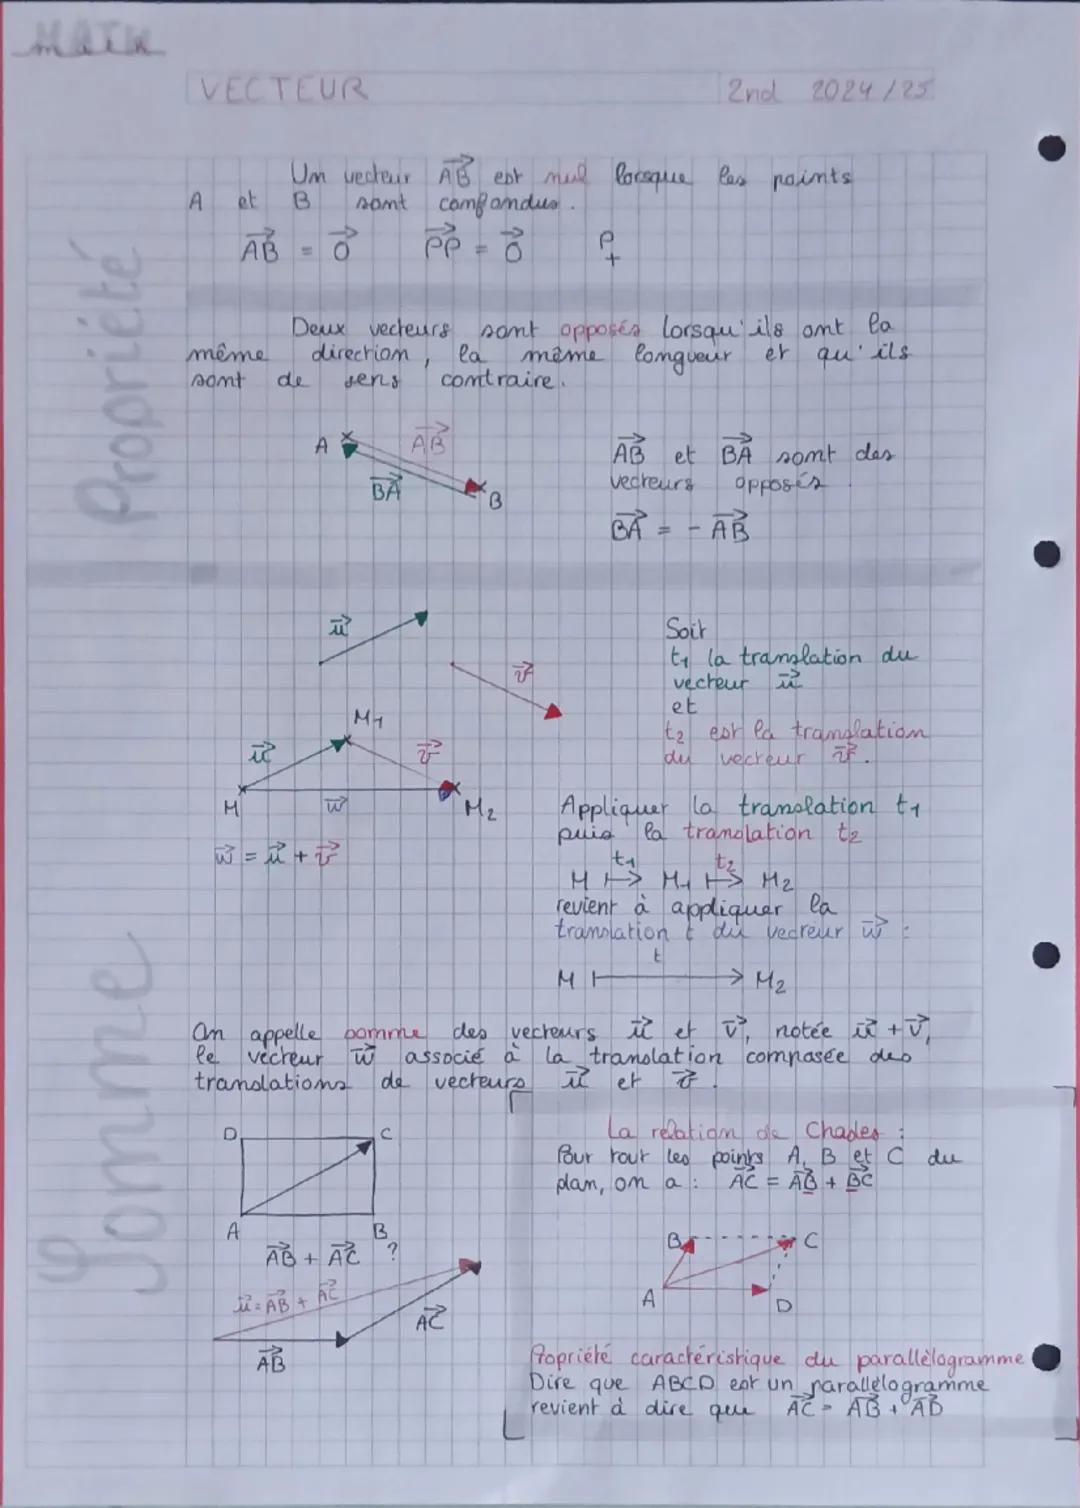 MATH
VECTEUR 2nd 2024/25
Propriété
Un vecteur $\overrightarrow{AB}$ est nul lorsque les points
A et B sont confondus.
$\overrightarrow{AB} = \vec{0}$ $\overrightarrow{PP} = \vec{0}$ P +
Deux vecteurs sont opposés lorsqu'ils ont la
même direction, la même longueur et qu'ils
sont de sens contraire.
A $\overrightarrow{AB}$
$\overrightarrow{BA}$ B
$\overrightarrow{AB}$ et $\overrightarrow{BA}$ sont des
vecteurs opposés
$\overrightarrow{BA} = - \overrightarrow{AB}$
Somme
$\vec{u}$
$\vec{v}$
Soit
t₁ la translation du
vecteur $\vec{u}$
et
t₂ est la translation
du vecteur $\vec{v}$.
M₁
$\vec{u}$ $\vec{v}$
M $\vec{w}$ M₂
$\vec{w} = \vec{u} + \vec{v}$
Appliquer la translation t₁
puis la translation t₂
t₁ t₂
M ↦ M₁ ↦ M₂
revient à appliquer la
translation t du vecteur $\vec{w}$ :
t
M ⟼ M₂
On appelle somme des vecteurs $\vec{u}$ et $\vec{v}$, notée $\vec{u} + \vec{v}$,
le vecteur $\vec{w}$ associé à la translation composée des
translations de vecteurs $\vec{u}$ et $\vec{v}$.
D C
A B
$\overrightarrow{AB} + \overrightarrow{AC}$ ?
$\vec{u} = \overrightarrow{AB} + \overrightarrow{AC}$
$\overrightarrow{AC}$
$\overrightarrow{AB}$
La relation de Chasles :
Pour tout les points A, B et C du
plan, on a : $\overrightarrow{AC} = \overrightarrow{AB} + \overrightarrow{BC}$
B C
A D
Propriété caractéristique du parallèlogramme
Dire que ABCD est un parallélogramme
revient à dire que $\overrightarrow{AC} = \overrightarrow{AB} + \overrightarrow{AD}$